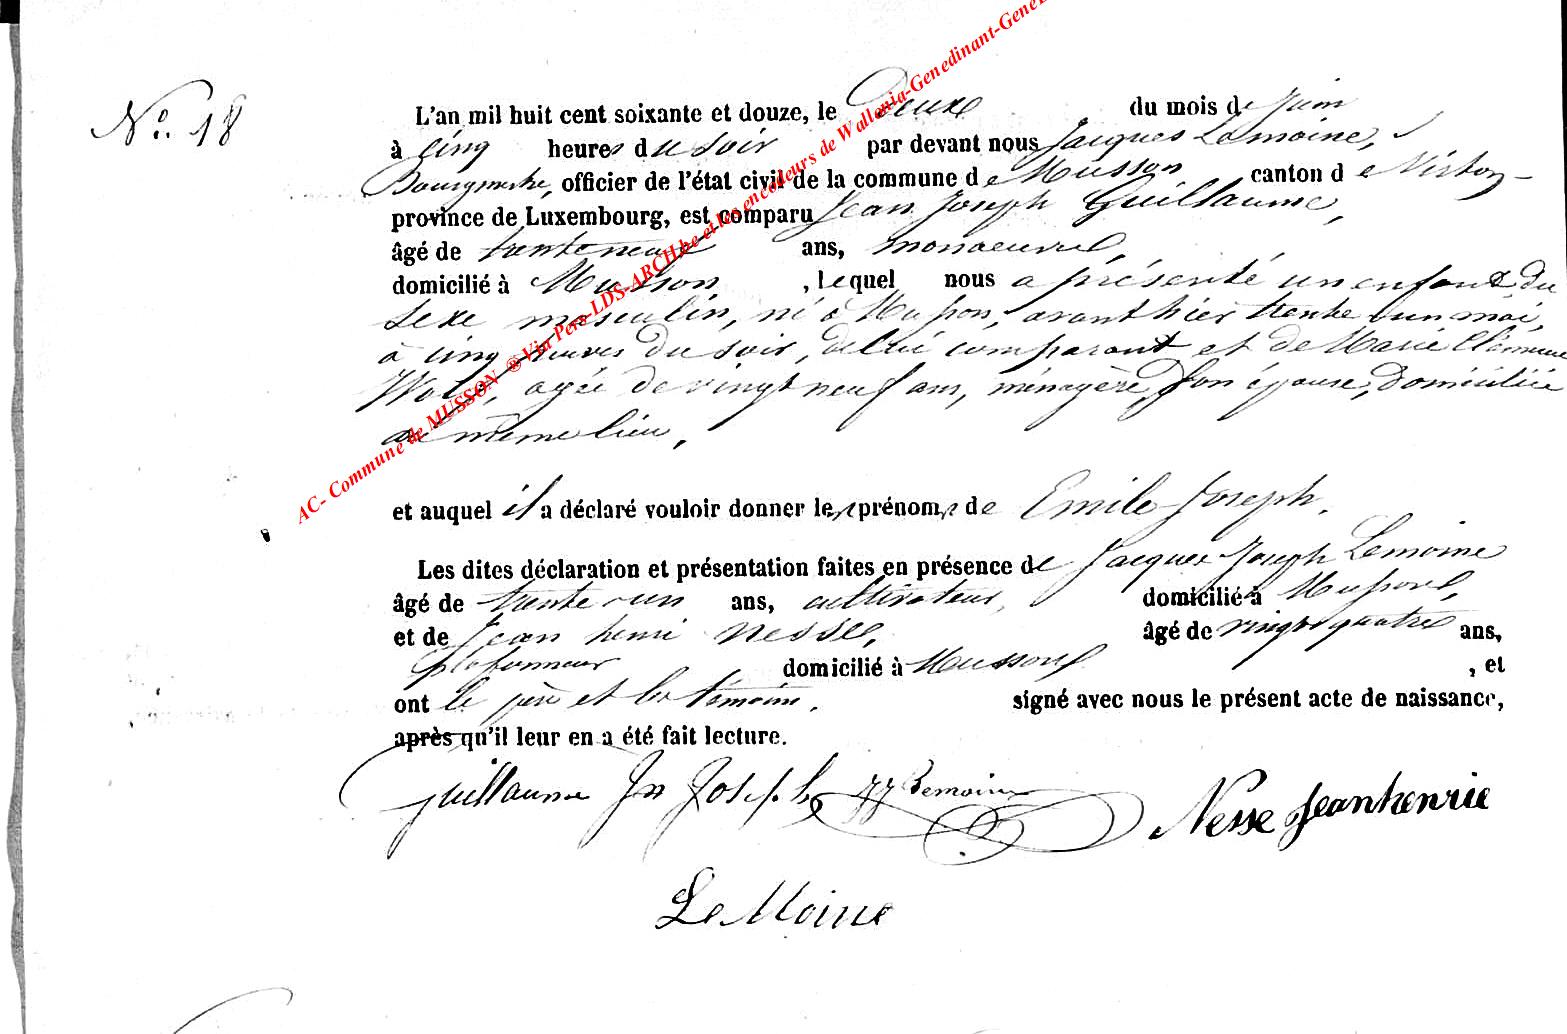 N°. 18
L'an mil huit cent soixante et douze, le Deux du mois de Juin
à cinq heures du soir par devant nous Jacques Lemoine,
Bourgmestre, officier de l'état civil de la commune de Musson canton de Virton
province de Luxembourg, est comparu Jean Joseph Guillaume,
âgé de trente neuf ans, manoeuvre,
domicilié à Musson, lequel nous a présenté un enfant du
sexe masculin, né à Musson, avant hier trente un mai,
à cinq heures du soir, de lui comparant et de Marie
agée de vingt neuf ans, ménagère, son épouse, domiciliée
au même lieu,
et auquel il a déclaré vouloir donner les prénoms de Emile Joseph.
Les dites déclaration et présentation faites en présence de Jacques Joseph Lemoine
âgé de trente un ans, cultivateur, domicilié à Musson,
et de Jean henri Nesse, âgé de vingt quatre ans,
plafonneur domicilié à Musson, et
ont le père et les témoins, signé avec nous le présent acte de naissance,
après qu'il leur en a été fait lecture.
guillaume Jn Joseph JJ Lemoine Nesse Jeanhenrie
Le Moine
AC- Commune de MUSSON ® Via Pers-LDS-ARCH.be et les encodeurs de Wallonia-Genedinant-